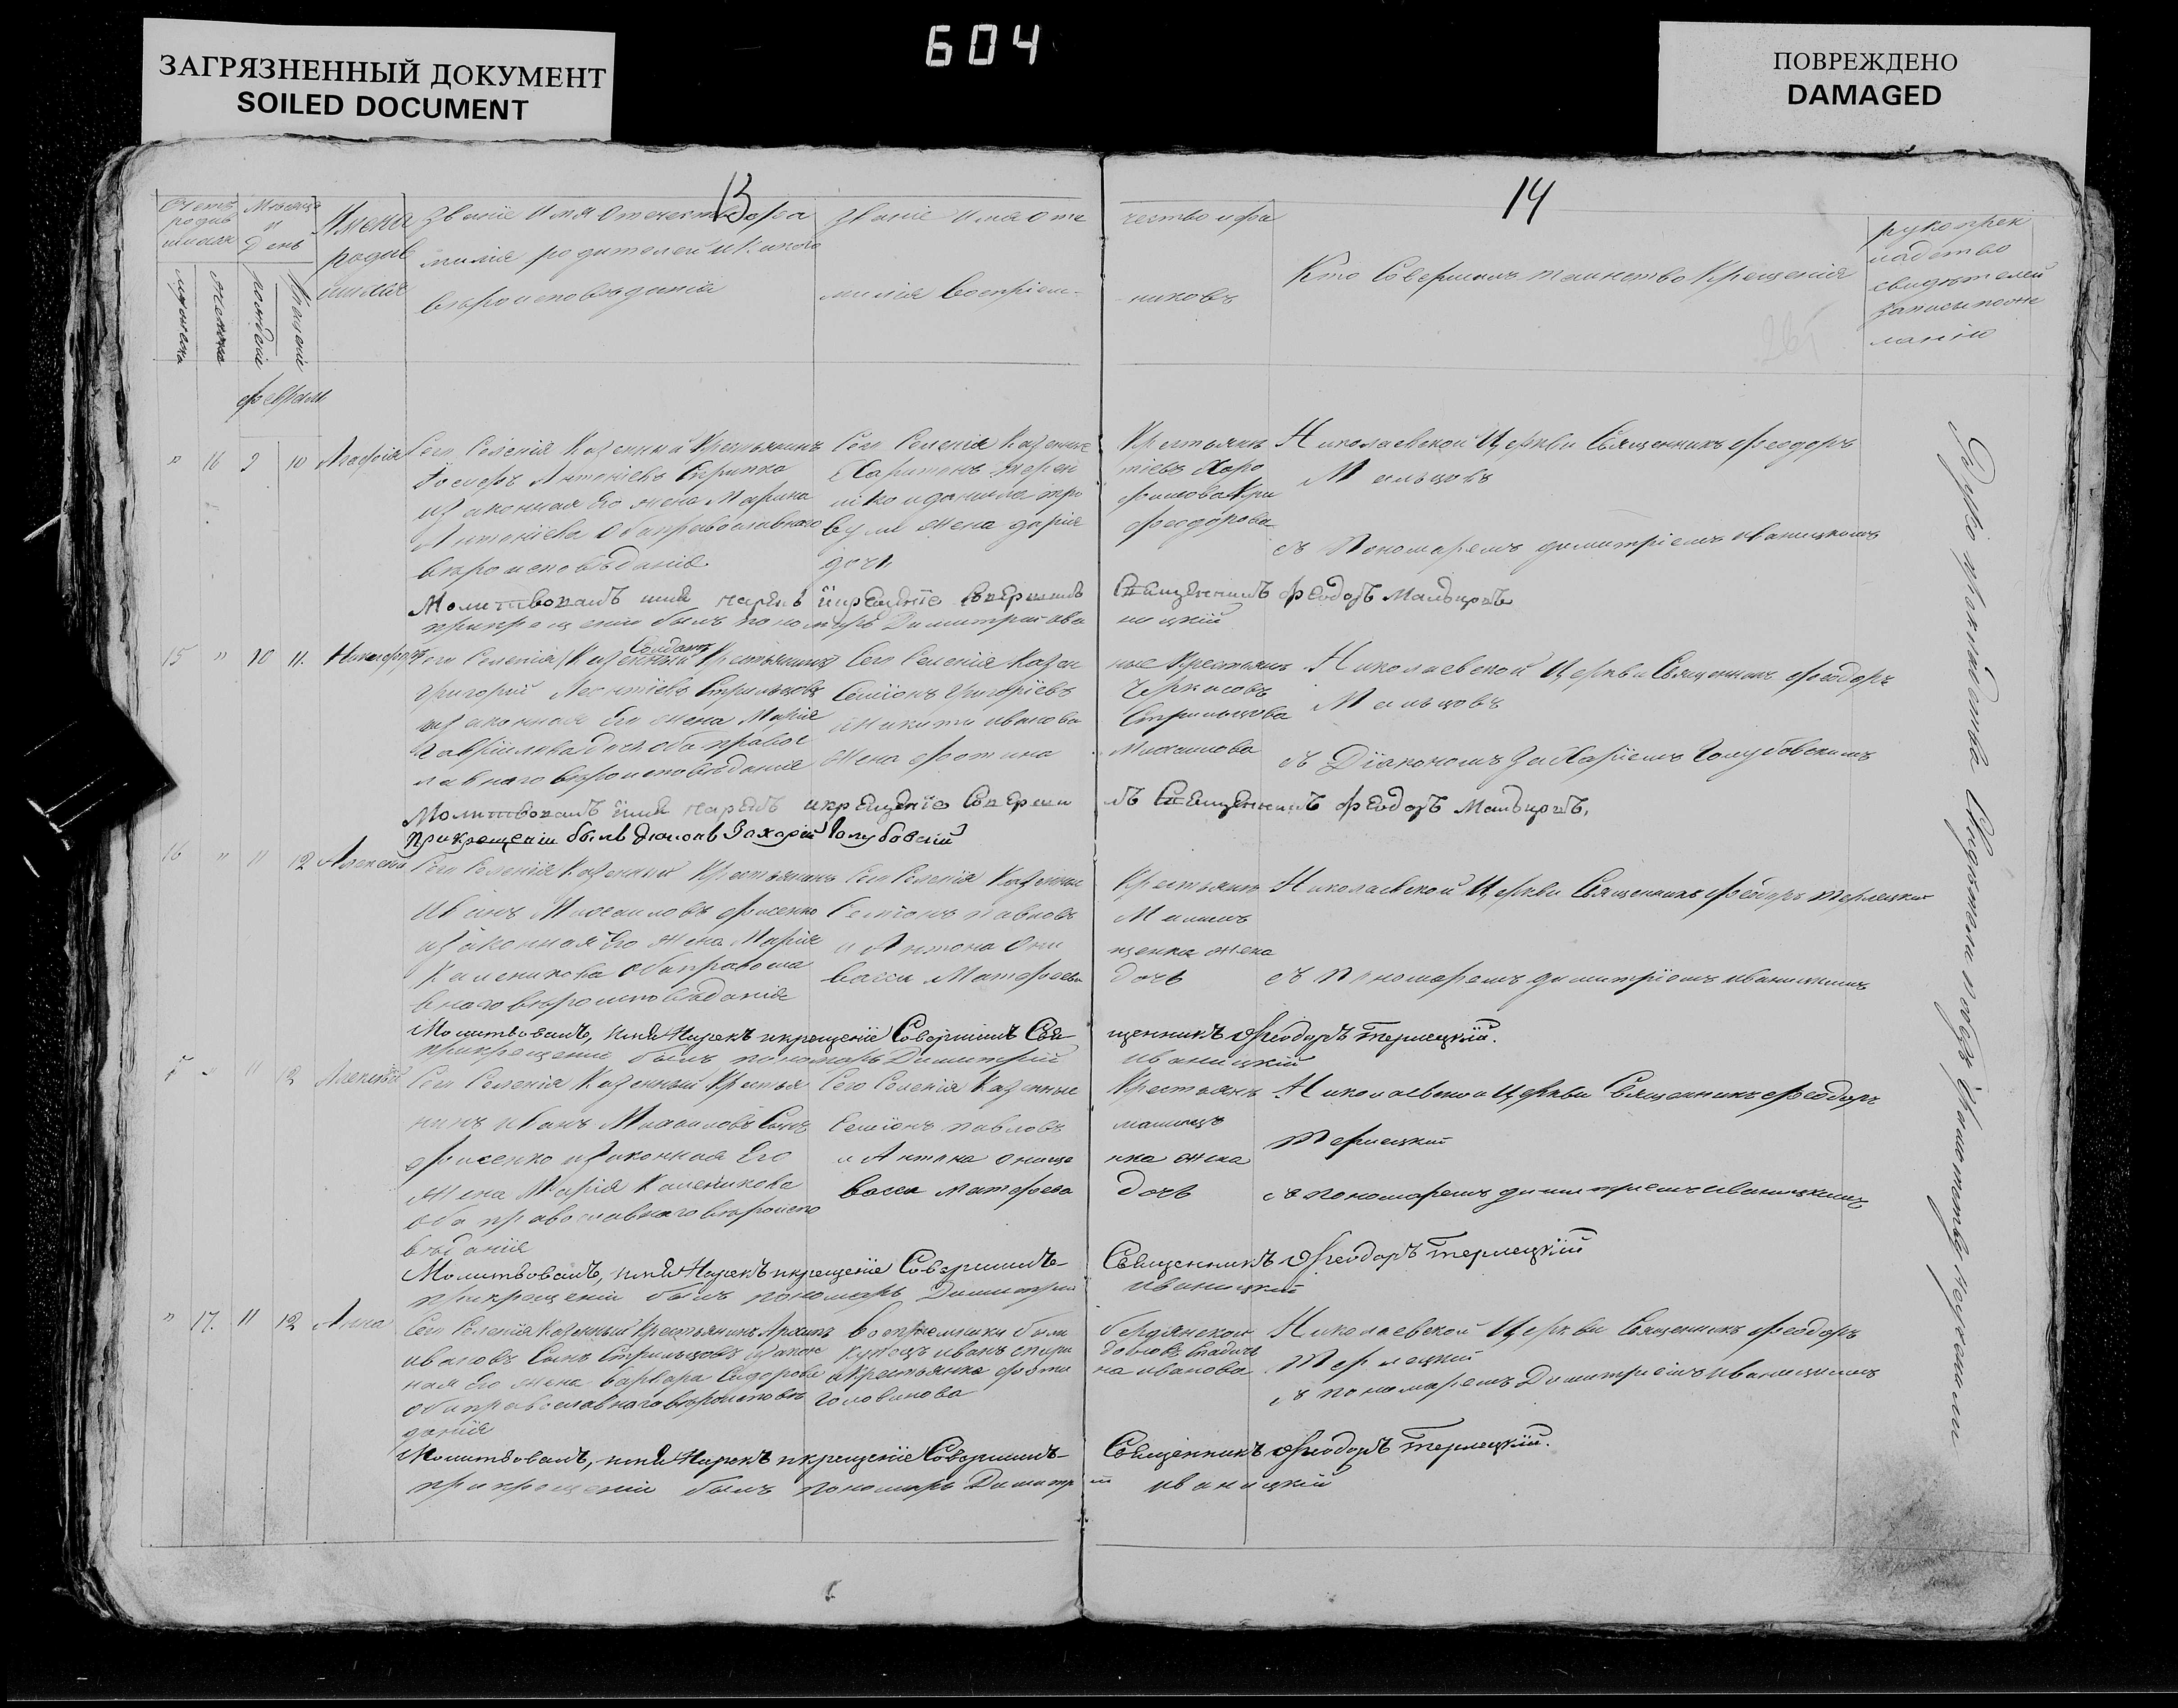 604
ЗАГРЯЗНЕННЫЙ ДОКУМЕНТ
SOILED DOCUMENT
ПОВРЕЖДЕНО
DAMAGED
13
14
Счетъ родив шихся
Мѣсяцъ и День
Имена родив шихся
Званіе Имя Отечество и фа
милія родителей и какого
вѣроисповѣданія
Званіе Имя Оте
милія Воспріем-
чество и фа
никовъ
Кто Совершалъ таинство Крещенія
рукоприк
ладство
свидѣтелей
записи по же
ланію
мужеска
женска
рожденіе
крещеніе
февраль
" 16 9 10 Агафія
Сего Селенія Казенный Крестьянинъ
Іосифъ Антоніевъ
изаконная Его жена Марина
Антоніева Оба православнаго
вѣроисповѣданія
Сего Селенія Казенные
Харитонъ
и данила
жена дарія
доч
Крестьянъ
тіевъ
феодорова
Николаевской Церкви Священникъ феодоръ
Мальцовъ
съ Пономаремъ димитріемъ иваницкимъ
Молитвовалъ имя нарекъ икрещеніе Совершилъ Священникъ феодоръ Мальцовъ
прикрещеніи былъ пономарь Димитрій ива ницкій
15 " 10 11. Никифоръ
Солдатъ
Сего Селенія Казенный Крестьянинъ
Григорій Леонтіевъ Стрильцовъ
изаконная Его жена Марія
Гавріилова дочь оба правос
лавнаго вѣроисповѣданія
Сего Селенія Казен
Симіонъ Григоріевъ
иникити иванова
жена фотина
ные Крестьянъ
Черкасовъ
Стрильцова
Михаилова
Николаевской Церкви Священникъ феодоръ
Мальцовъ
съ Діакономъ Захаріемъ Голубовскимъ
Молитвовалъ имя нарекъ икрещеніе Соверши лъ Священникъ феодоръ Мальцовъ.
Прикрещеніи былъ Діаконъ Захарій Голубовскій
16 " 11 12 Алексей
Сего Селенія Казенный Крестьянинъ
Иванъ Михаиловъ фисенко
изаконная Его жена Марія
Каленикова Оба правосла
внаго вѣроисповѣданія
Сего Селенія Казенные
Семіонъ павловъ
и Антона Они
васса Матфеева
Крестьянъ
щенка жена
дочь
Николаевской Церкви Священникъ феодоръ терлецкій
съ пономаремъ димитріемъ иваницкимъ
Молитвовалъ, имя Нарекъ икрещеніе Совершилъ Свя щенникъ Феодоръ Терлецкій.
прикрещеніи былъ пономарь Димитрій иваницкій
" 11 12 Алексей
Сего Селенія Казенный Крестья
нинъ иванъ Михаиловъ Сынъ
фисенко изаконная Его
жена Марія Каленикова
Оба православнаго вѣроиспо
вѣданія
Сего Селенія Казенные
Семіонъ павловъ
и Антона онище
васса матфеева
Крестьянъ
нка жена
дочь
Николаевской Церкви Священникъ феодоръ
терлецкій
съ пономаремъ димитріемъ иваницкимъ
Молитвовалъ, имя Нарекъ икрещеніе Совершилъ Священникъ Феодоръ Терлецкій
прикрещеніи былъ пономарь Димитрій иваницкій
" 17. 11 12 Анна
Сего Селенія Казенный Крестьянинъ Архипъ
ивановъ Сынъ Стрильцовъ изакон
ная Его жена варвара Сидорова
оба православнаго вѣроисповѣ
данія
воспріемники были
купецъ иванъ
икрестьянка фоти
Голованова
бердянской
на иванова
Николаевской Церкви Священникъ феодоръ
Терлецкій
съ пономаремъ Димитріемъ иваницкимъ
Молитвовалъ, имя Нарекъ икрещеніе Совершилъ Священникъ Феодоръ Терлецкій.
прикрещеніи былъ пономарь Димитр ій иваницкій